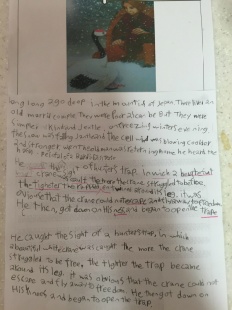 long long ago deep in the mountid of Jepan There lives an
old marrid couple They were poor also be But They were
simple kind and gentle on freezing winters evening
the snow was falling landward the cold wind was blowing colder
and stronger up The old man was returning home he heard the
He sight of hunters trap. In wich a beautiful
crane was caught the more the crane struggled to be free
the tighter the around its leg. it was
obvious that the crane could not escape and fly away to freedom
He then, got down on his nes and began to open the Trape
He caught the sight of a hunters trap, in which
a beautiful white crane was caught the more the crane
struggled to be free, the tighter the trap became
around its leg. it was obvious that the crane could not
escape and fly away to freedom. He then got down on
his knees and began to open the trap.